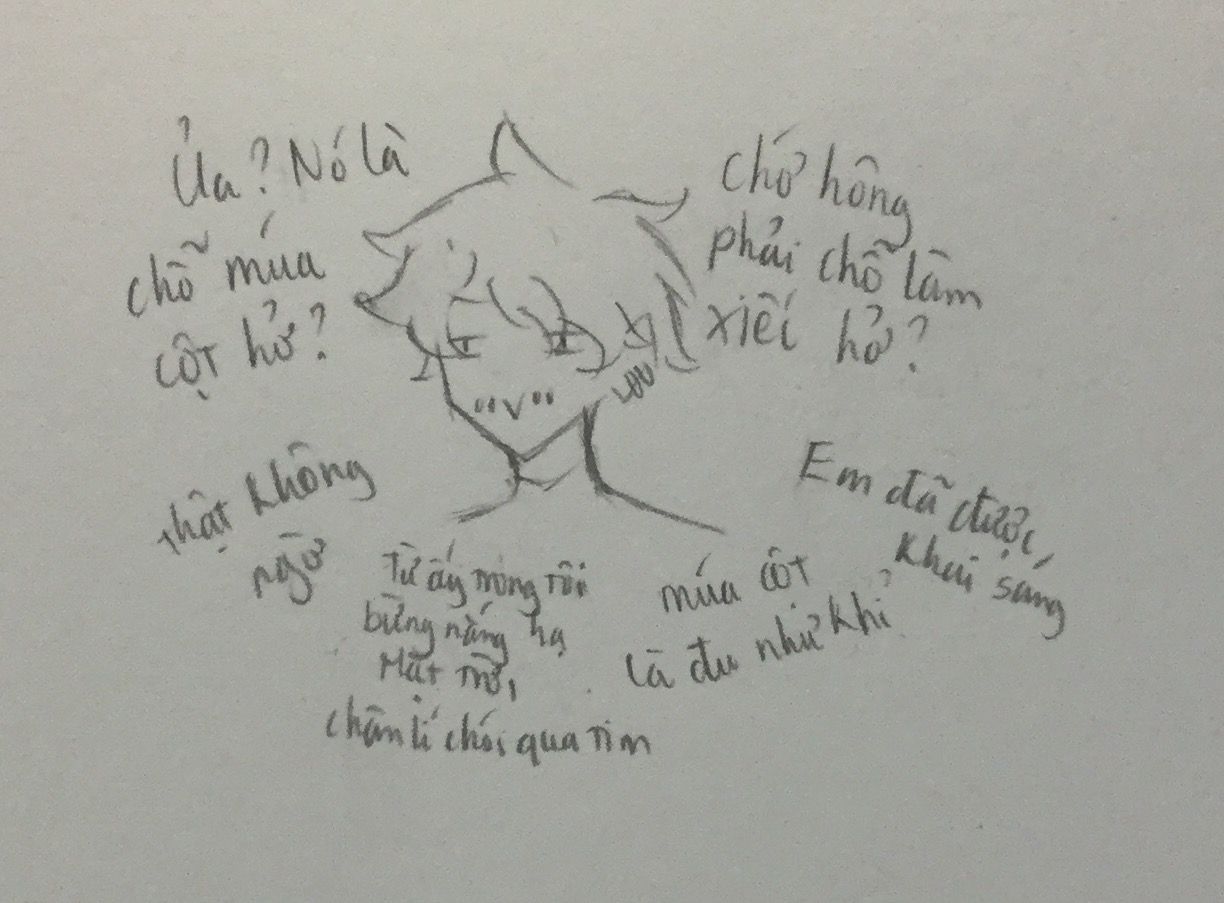 Ủa? Nó là
chỗ múa
cột hở?
chớ hông
phải chỗ làm
xiếc hở?
Thật không
ngờ
Từ ấy trong tôi
bừng nắng hạ
Mặt trời
chân lí chói qua tim
múa cột
là đu như khỉ
Em đã được
khai sáng